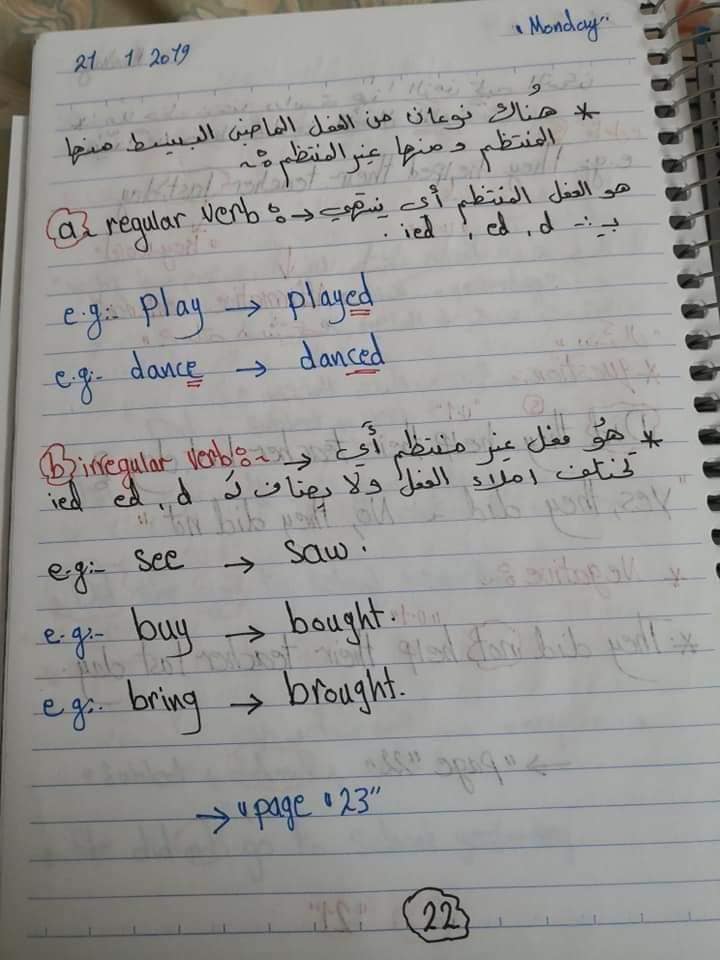 Monday.
21 1 2019
* هُناك نوعان من الفعل الماضي البسيط منها
المنتظم ومنها غير المنتظم :~
a~ regular verb :~ → هو الفعل المنتظم أي ينتهي
بـ :- d , ed , ied .
e.g:- play → played
e.g:- dance → danced
b) irregular verb :~ → * هوُ فعل غير منتظم أي
تختلف املاء الفعل ولا يضاف لـ d , ed ied
e.g:- see → saw.
e.g:- buy → bought.
e.g:- bring → brought.
→ "page "23"
22